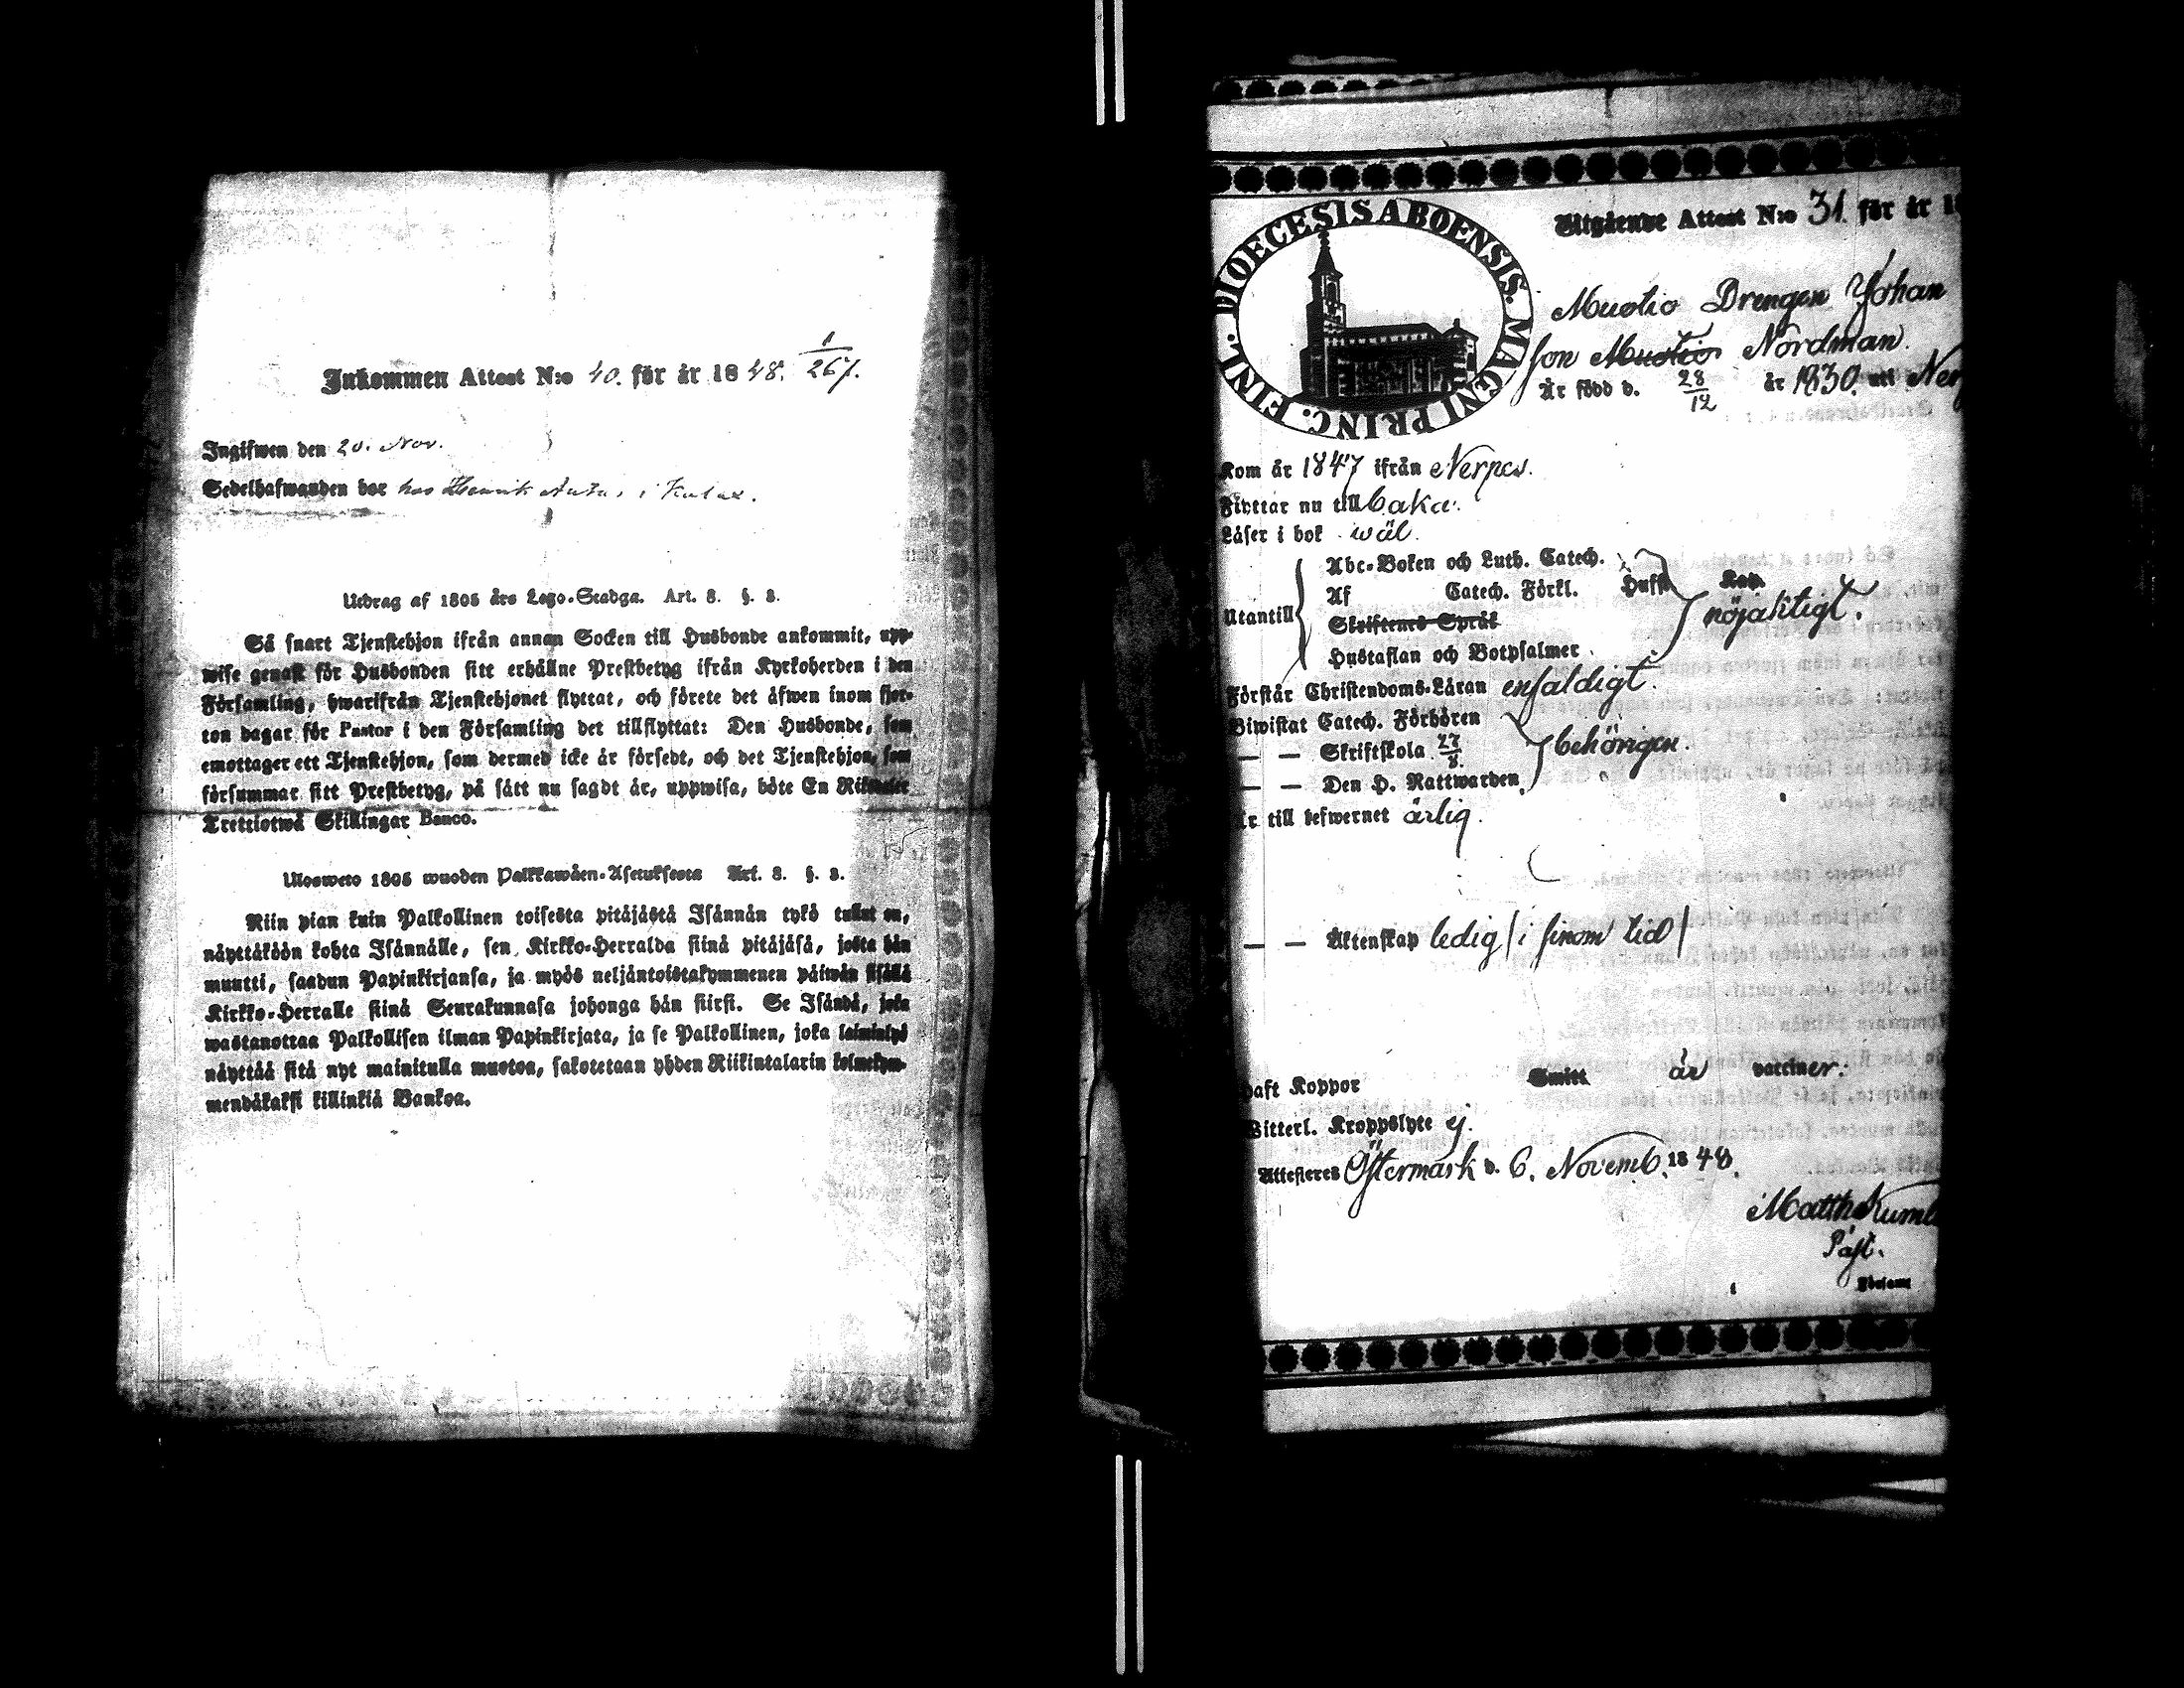 Inkommen Attest N:o 40. för år 1848. 1/267.
Ingifwen den 20. Nov.
Sedelhafwanden bor hos Henrik i
Utdrag af 1805 års Lego-Stadga. Art. 8. §. 8.
Så snart Tjenstehjon ifrån annan Socken till Husbonde ankommit, upp-
wise genast för Husbonden sitt erhållne Prestbetyg ifrån Kyrkoherden i den
Församling, hwarifrån Tjenstehjonet flyttat, och förete det äfwen inom fjor-
ton dagar för Pastor i den Församling det tillflyttat: Den Husbonde, som
emottager ett Tjenstehjon, som dermed icke är försedt, och det Tjenstehjon, som
försummar sitt Prestbetyg, på sätt nu sagdt är, uppwisa, böte En Riksdaler
Trettiotwå Skillingar Banco.
Ulosweto 1805 wuoden Palkkawäen-Asetuksesta Art. 8. §. 8.
Niin pian kuin Palkollinen toisesta pitäjästä Isännän tykö tullut on,
näyttäköön kohta Isännälle, sen Kirkko-Herralda siinä pitäjäsä, josta hän
muutti, saadun Papinkirjansa, ja myös neljäntoistakymmenen päiwän sisällä
Kirkko-Herralle siinä Seurakunnasa johonga hän siirsi. Se Isändä, joka
wastanottaa Palkollisen ilman Papinkirjata, ja se Palkollinen, joka laiminlyö
näyttää sitä nyt mainitulla muotoa, sakotetaan yhden Riikintalarin kolmekym-
mendäkaksi killinkiä Bankoa.
DIOECESIS ABOENSIS. MAGNI PRINC. FINL.
Utgående Attest N:o 31. för år 1
Muotio Drengen Johan
son Muotio Nordman.
Är född d. 28/12 år 1830. uti Ner
Kom år 1847 ifrån Nerpes.
Flyttar nu till baka.
Läser i bok wäl.
Utantill
Abc-Boken och Luth. Catech.
Af Catech. Förkl. Hufs Kap.
Skriftenes Språk
Hustaflan och Botpsalmer
nöjaktigt.
Förstår Christendoms-Läran enfaldigt.
Biwistat Catech. Förhören
— — Skriftskola 27/8.
— — Den H. Nattwarden,
behörigen.
r till lefwernet ärlig.
— — Äktenskap ledig (i sinom tid)
aft Koppor Smitt är vacciner:
Witterl. Kroppslyte ej.
Attesteres Östermark d. 6. Novemb. 1848.
Matth Kuml
Past.
Församl